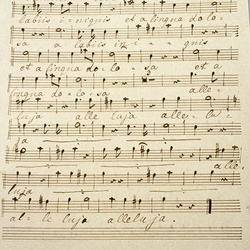 labiis iniquis et a lingua dolo-
sa a labiis ini - quis
et a lingua do-lo- sa et a
lingua do-lo-sa alle-
luja alle luja alle-lu-
ja alle-
luja
al-le luja alleluja.